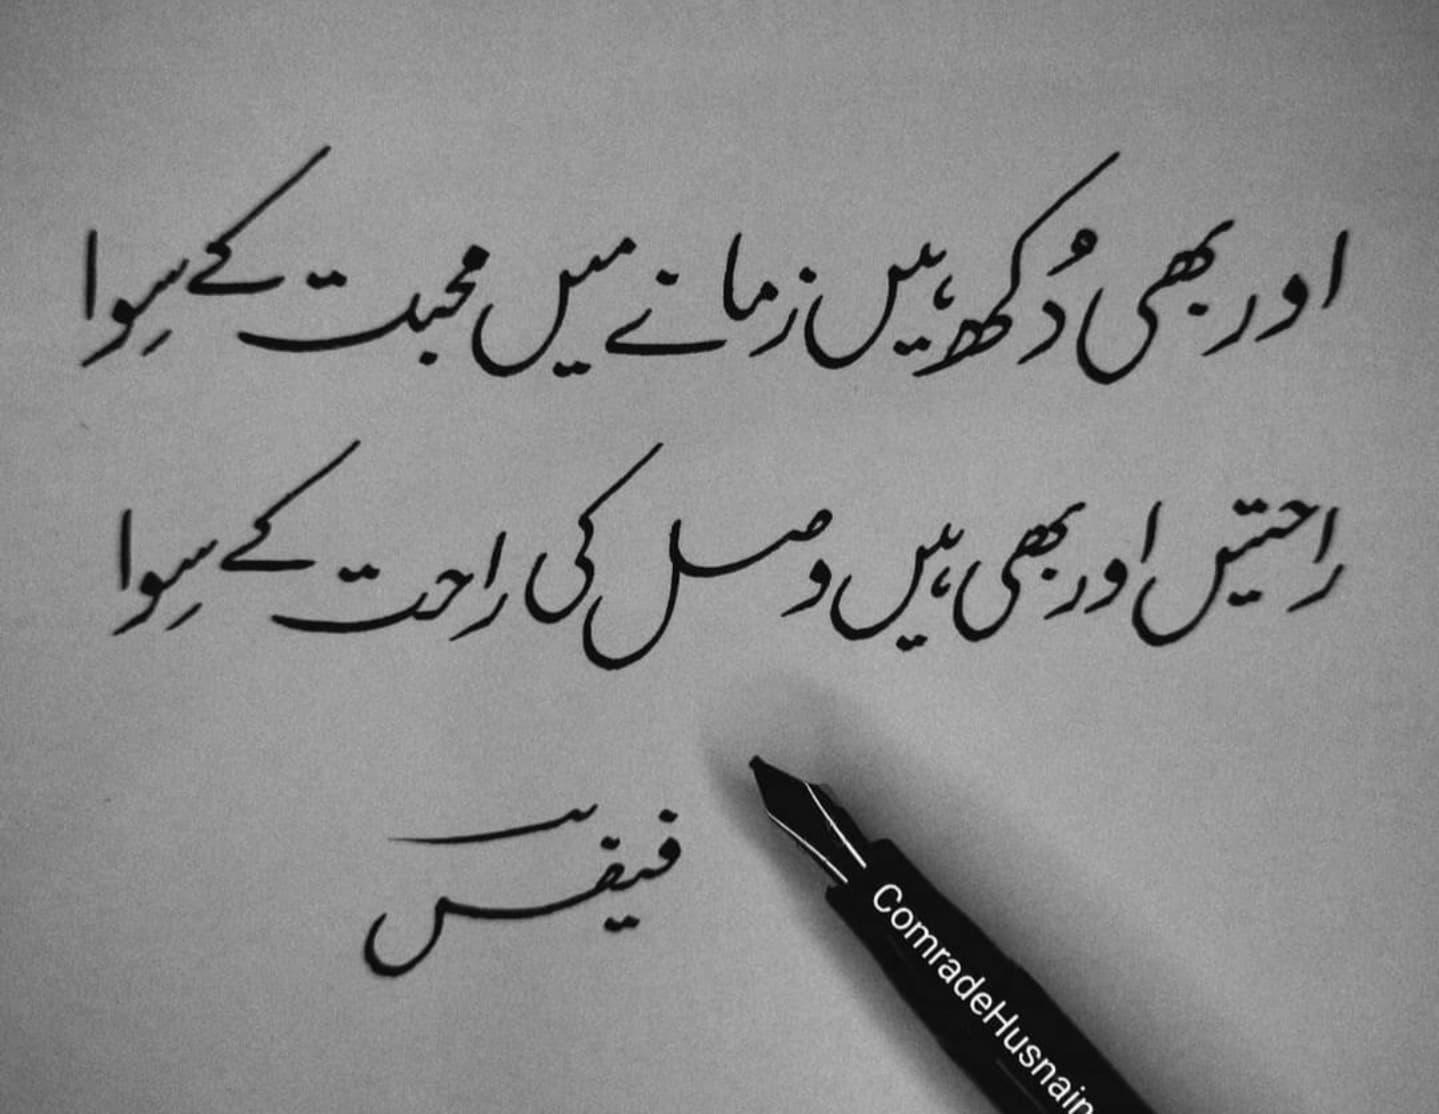 اور بھی دُکھ ہیں زمانے میں محبت کے سِوا
راحتیں اور بھی ہیں وصل کی راحت کے سِوا
فیض
ComradeHusnain